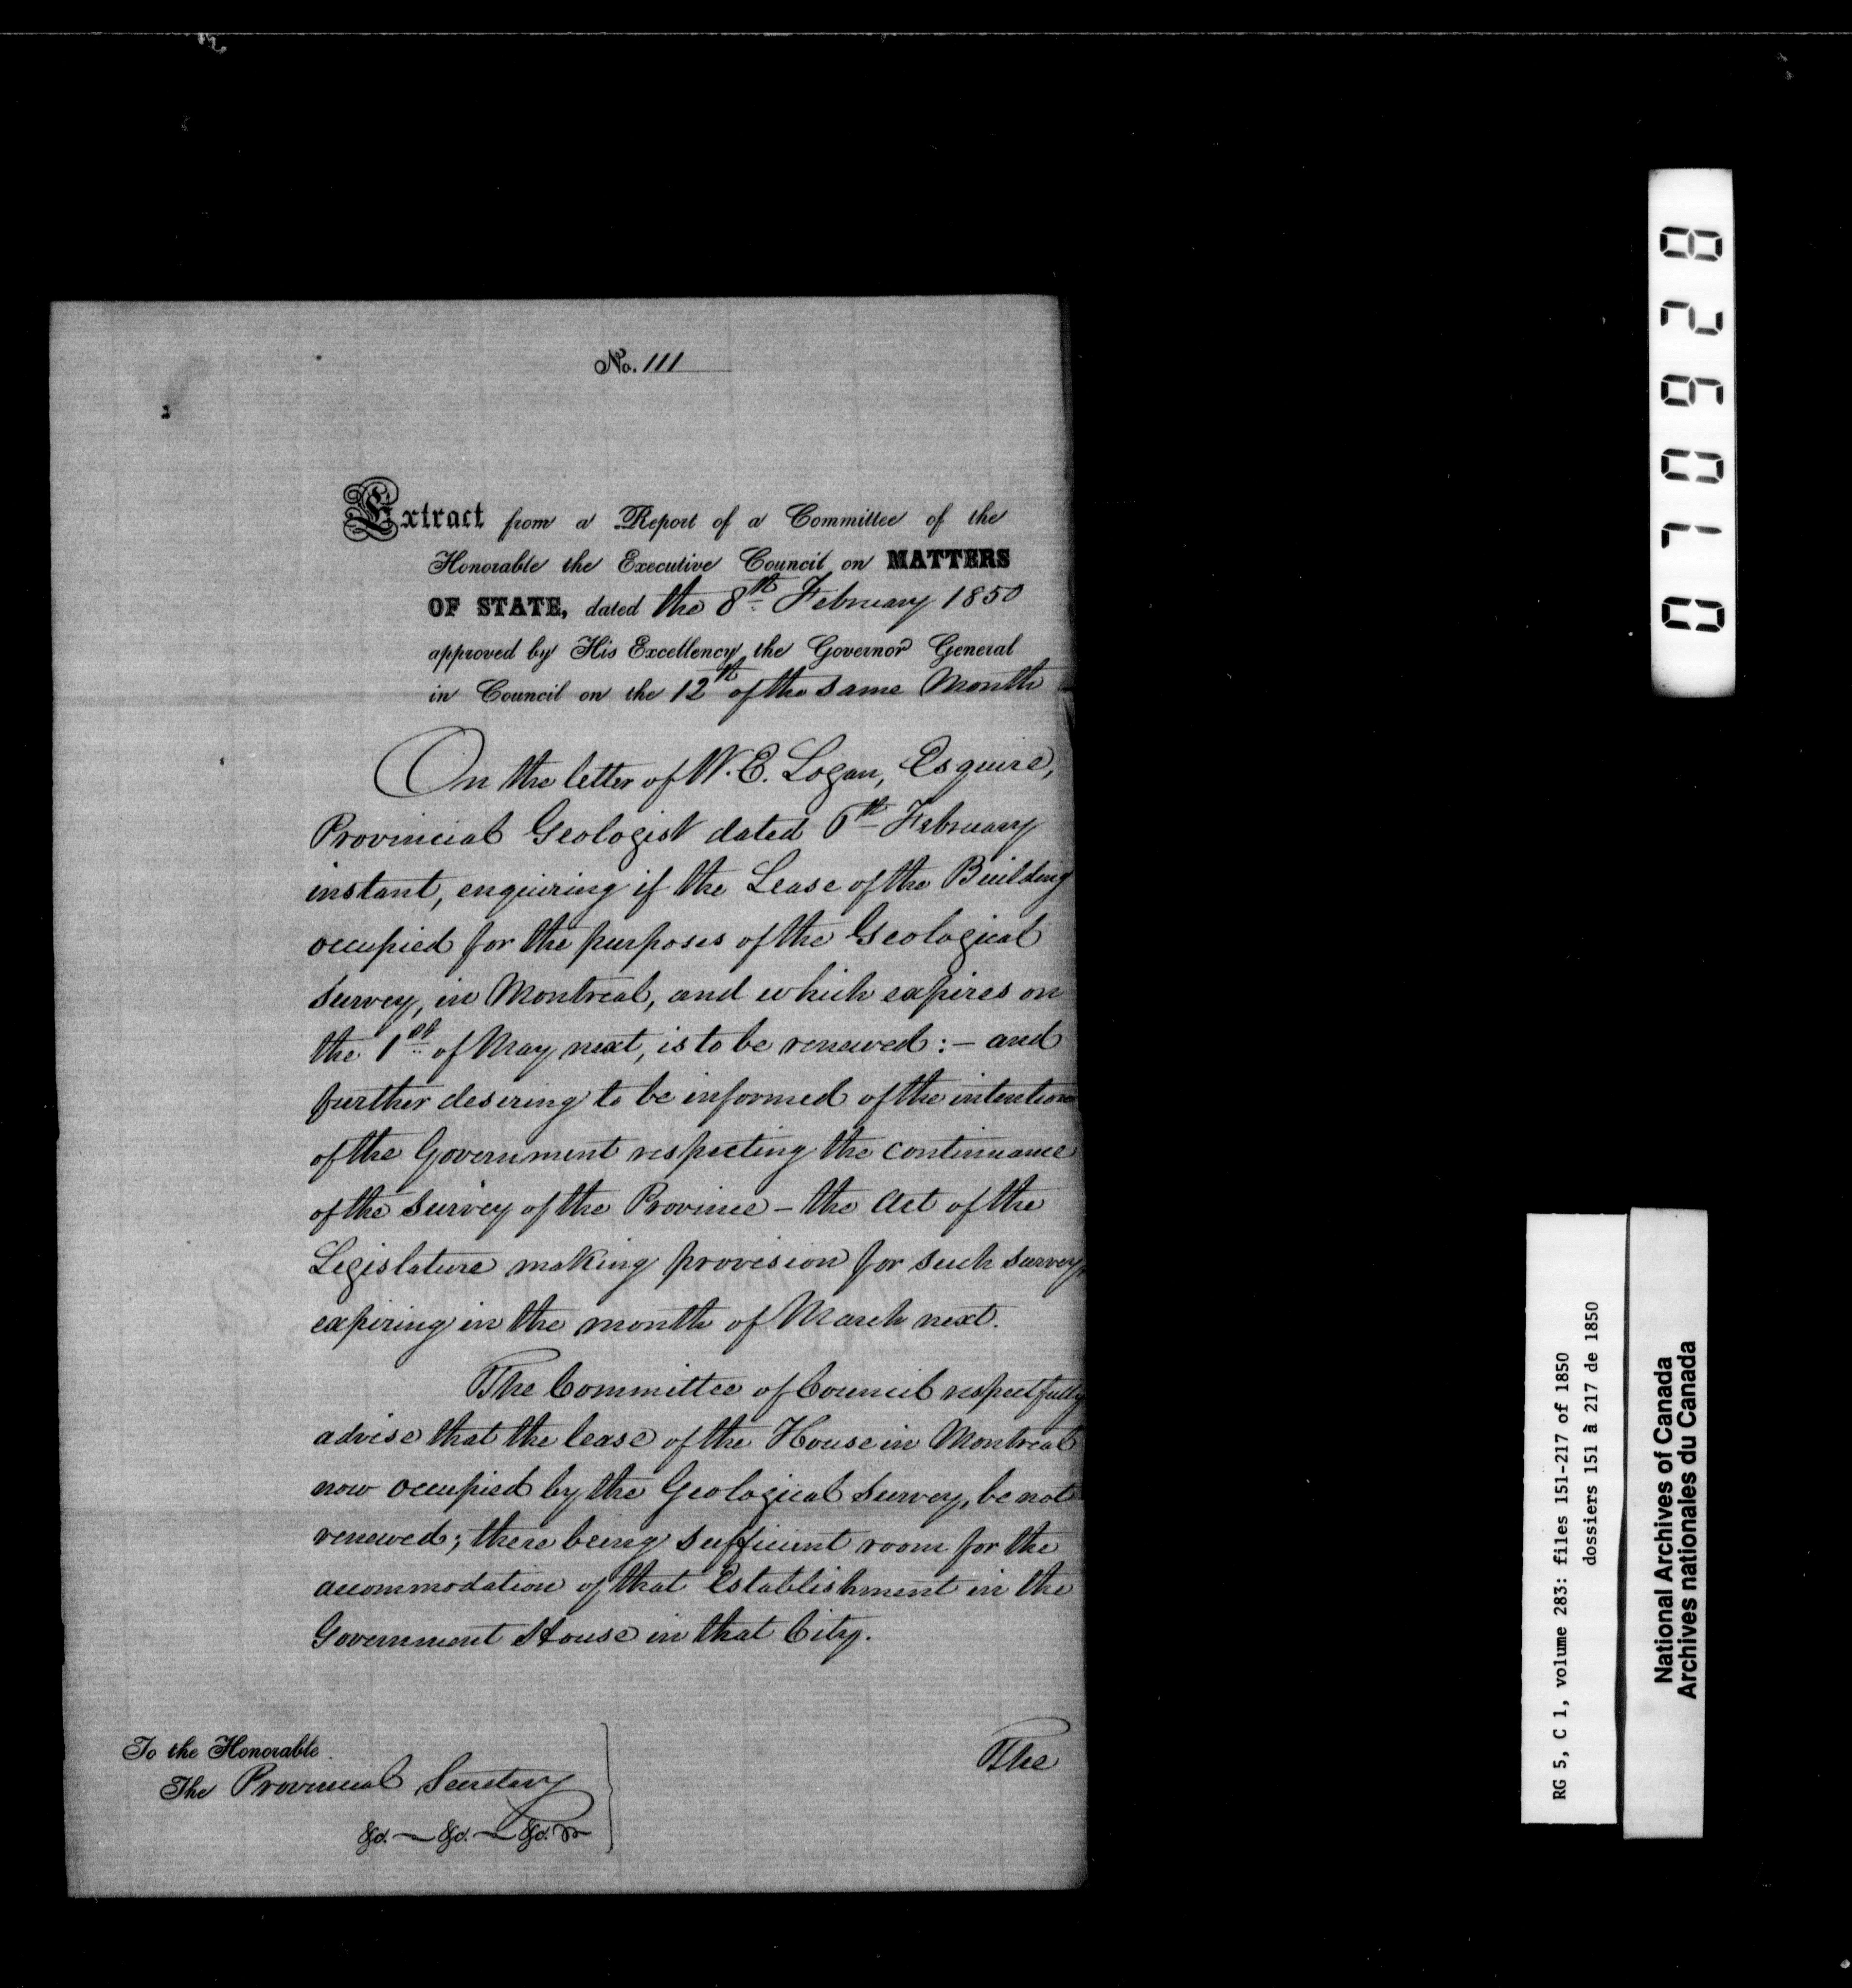 No. 111
Extract from a Report of a Committee of the
Honorable the Executive Council on MATTERS
OF STATE, dated the 8th February 1850
approved by His Excellency the Governor General
in Council on the 12th of the same Month
On the letter of W. E. Logan, Esquire,
Provincial Geologist dated 6th February
instant, enquiring if the Lease of the Building
occupied for the purposes of the Geological
Survey, in Montreal, and which expires on
the 1st of May next, is to be renewed :- and
further desiring to be informed of the intentions
of the Government respecting the continuance
of the Survey of the Province - the Act of the
Legislature making provision for such survey,
expiring in the month of March next.
The Committee of Council respectfully
advise that the lease of the House in Montreal
now occupied by the Geological Survey, be not
renewed; there being sufficient room for the
accommodation of that Establishment in the
Government House in that City.
To the Honorable
The Provincial Secretary
&c. &c. &c.
The
0710928
RG 5, C 1, volume 283: files 151-217 of 1850
dossiers 151 à 217 de 1850
National Archives of Canada
Archives nationales du Canada